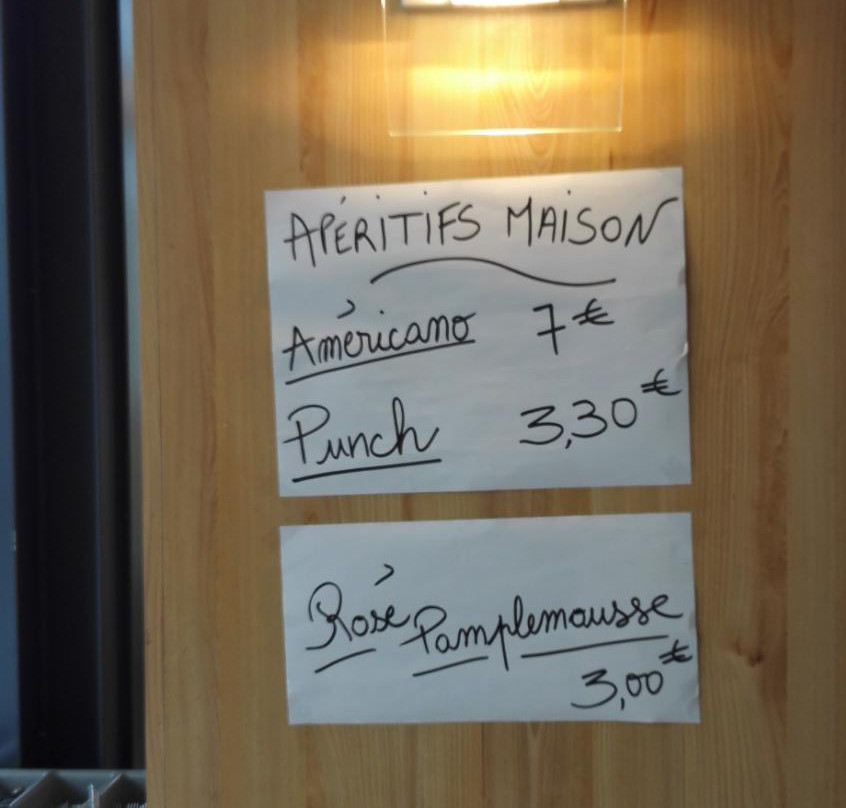 APÉRITIFS MAISON
Américano 7€
Punch 3,30€
Rosé Pamplemousse
3,00€